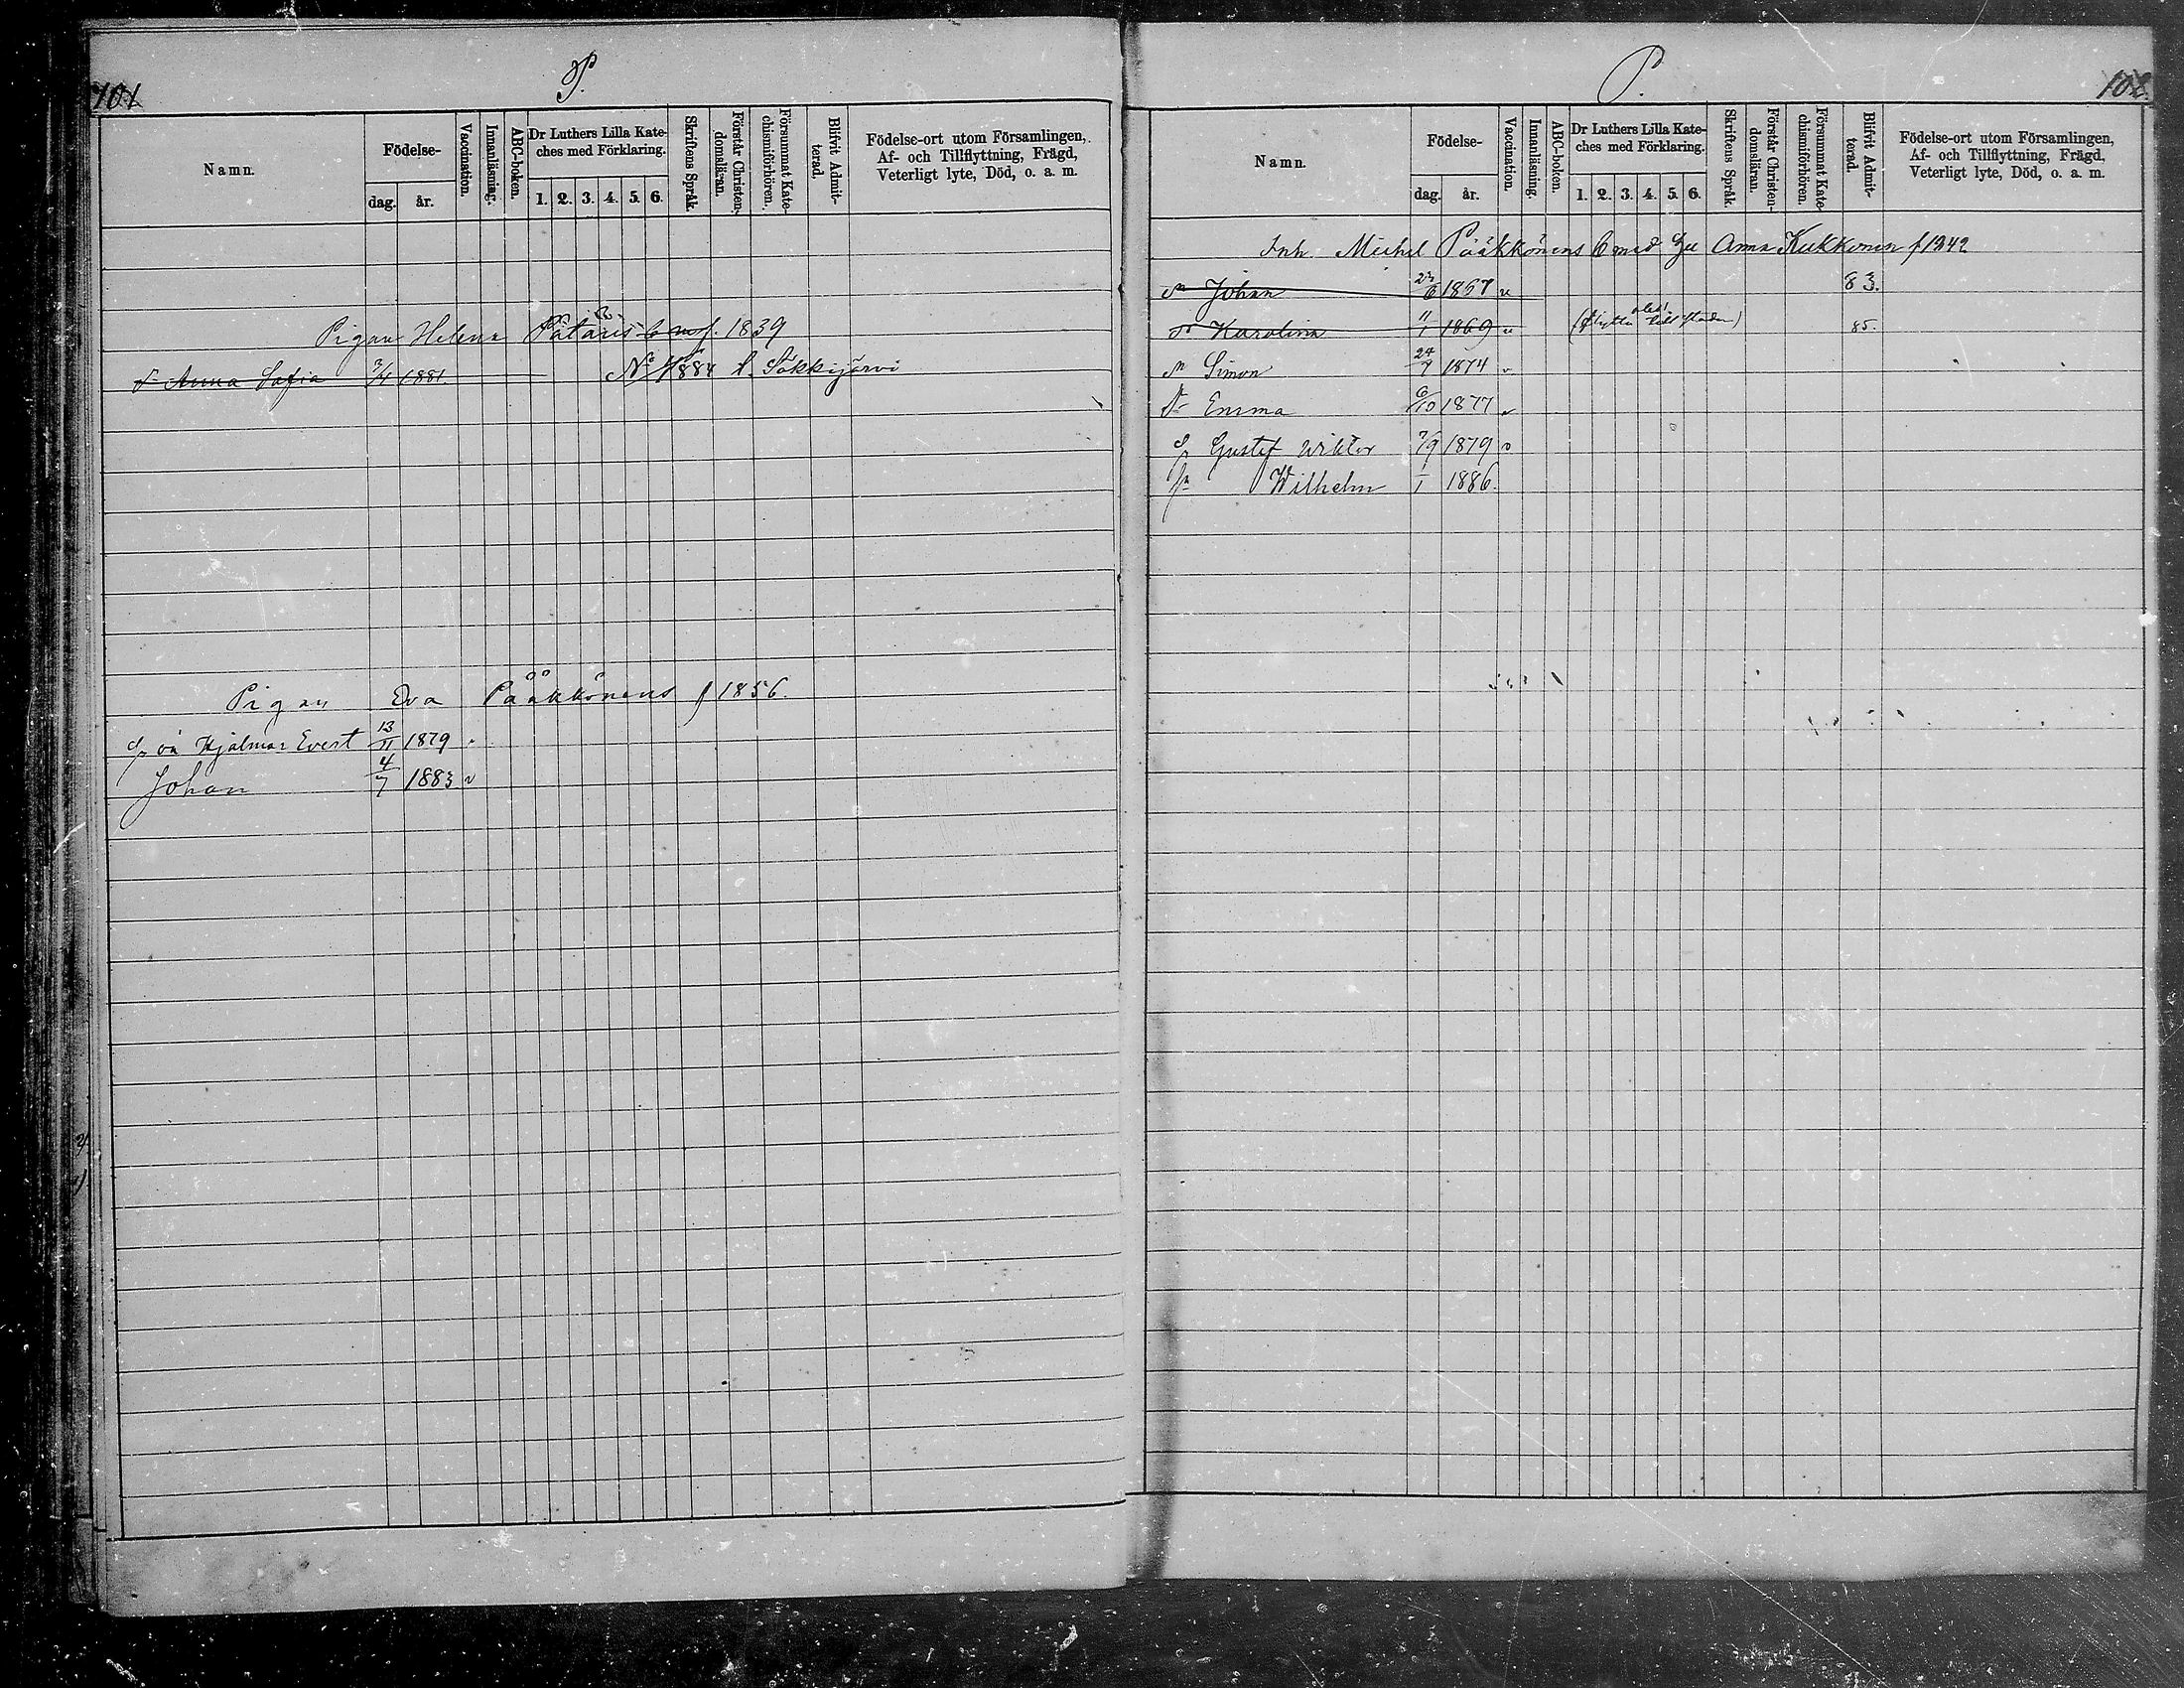 101
P.
Namn.
Födelse-
dag.
år.
Vaccination.
Innanläsning.
ABC-boken.
Dr Luthers Lilla Kate-
ches med Förklaring.
1. 2. 3. 4. 5. 6.
Skriftens Språk.
Förstår Christen-
domsläran.
Försummat Kate-
chismiförhören.
Blifvit Admit-
terad.
Födelse-ort utom Församlingen,
Af- och Tillflyttning, Frägd,
Veterligt lyte, Död, o. a. m.
Pigan Helena 1839
Anna Sofia 7/4 1881 1884 Säkkijärvi
Pigan Eva Pääkkönens f 1856.
oä Hjalmar Evert 13/11 1879
Johan 4/7 1883
P.
108.
Namn.
Födelse-
dag.
år.
Vaccination.
Innanläsning.
ABC-boken.
Dr Luthers Lilla Kate-
ches med Förklaring.
1. 2. 3. 4. 5. 6.
Skriftens Språk.
Förstår Christen-
domsläran.
Försummat Kate-
chismiförhören.
Blifvit Admit-
terad.
Födelse-ort utom Församlingen,
Af- och Tillflyttning, Frägd,
Veterligt lyte, Död, o. a. m.
Inh. Michel Pääkkönens b med Anna Kukkonen f 1842
Johan 23/6 1867 83.
Karolina 11/1 1869 85.
Simon 24/9 1874
Emma 6/10 1877
Gustaf Wiktor 7/9 1879
Wilhelm 1/1 1886.